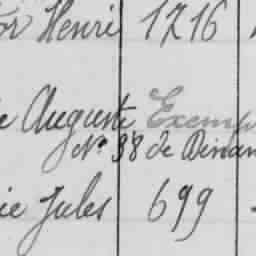 or Henri 1716
e Auguste Exemp
N° 38 de Dinan
ie Jules 699